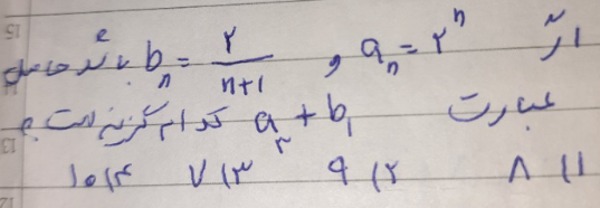 اگر a_n = ۲^n و b_n = ۲/(n+1) باشد حاصل
عبارت a_۳ + b_1 کدام گزینه است؟
۱) ۸ ۲) ۹ ۳) ۷ ۴) ۱۰